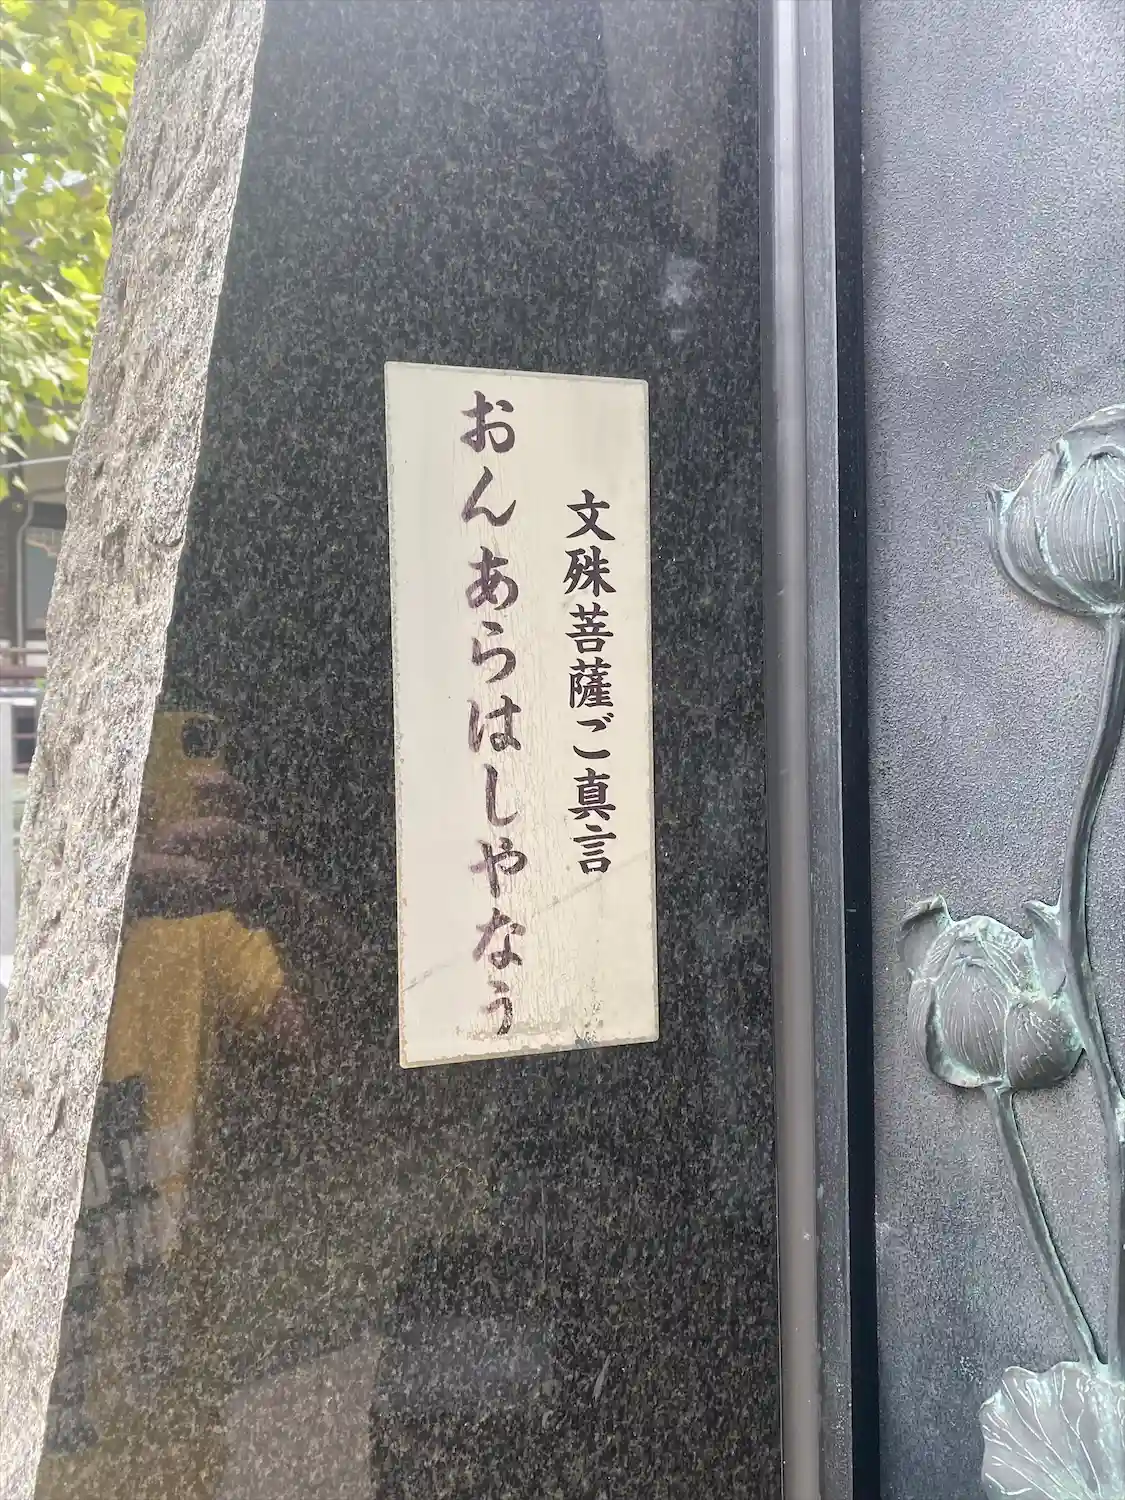 文殊菩薩ご真言
おんあらはしゃなぅ